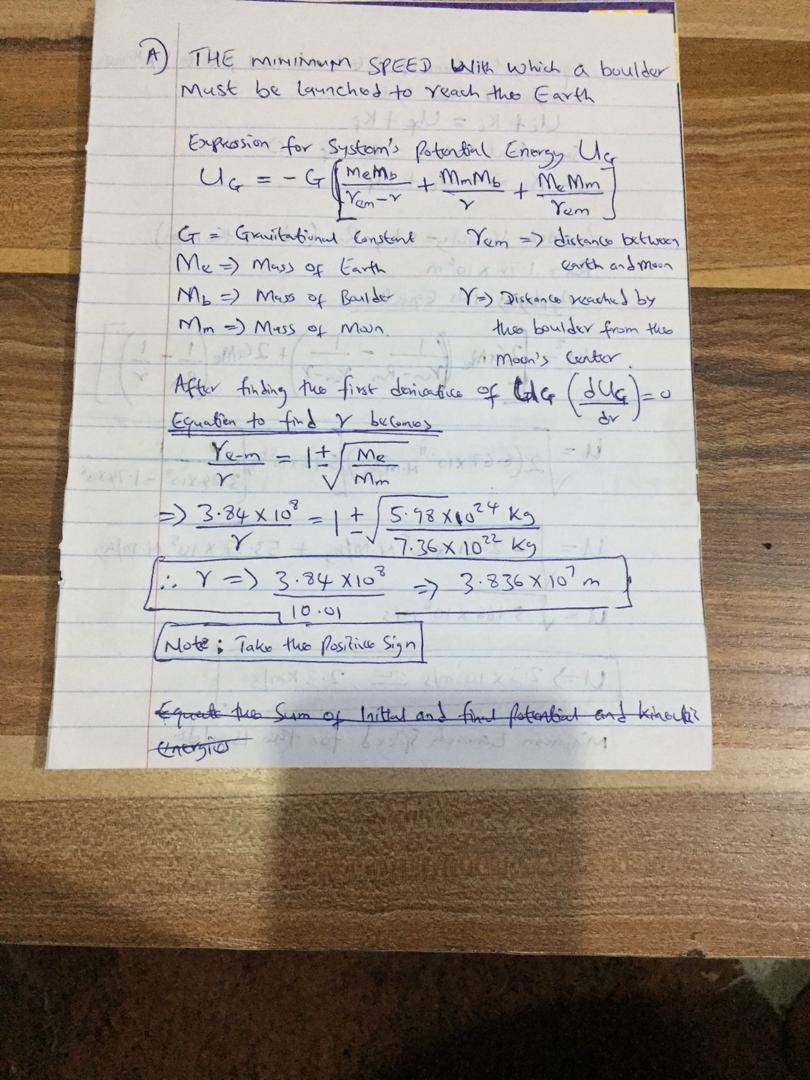 A) THE MINIMUM SPEED With which a boulder
Must be launched to reach the Earth
Expression for System's Potential Energy U_G
U_G = - G [ MeMb / (rem - r) + MmMb / r + MeMm / rem ]
G = Gravitational Constant    rem => distance between
Me => Mass of Earth    earth and moon
Mb => Mass of Boulder    r => Distance reached by
Mm => Mass of Moon.    the boulder from the
Moon's Center.
After finding the first derivative of U_G (dU_G / dr) = 0
Equation to find r becomes
re-m / r = 1 ± √(Me / Mm)
=> 3.84 × 10^8 / r = 1 ± √(5.98 × 10^24 Kg / 7.36 × 10^22 Kg)
∴ r => 3.84 × 10^8 / 10.01 => 3.836 × 10^7 m
Note: Take the Positive Sign
Equate the Sum of Initial and final Potential and Kinetic
energies